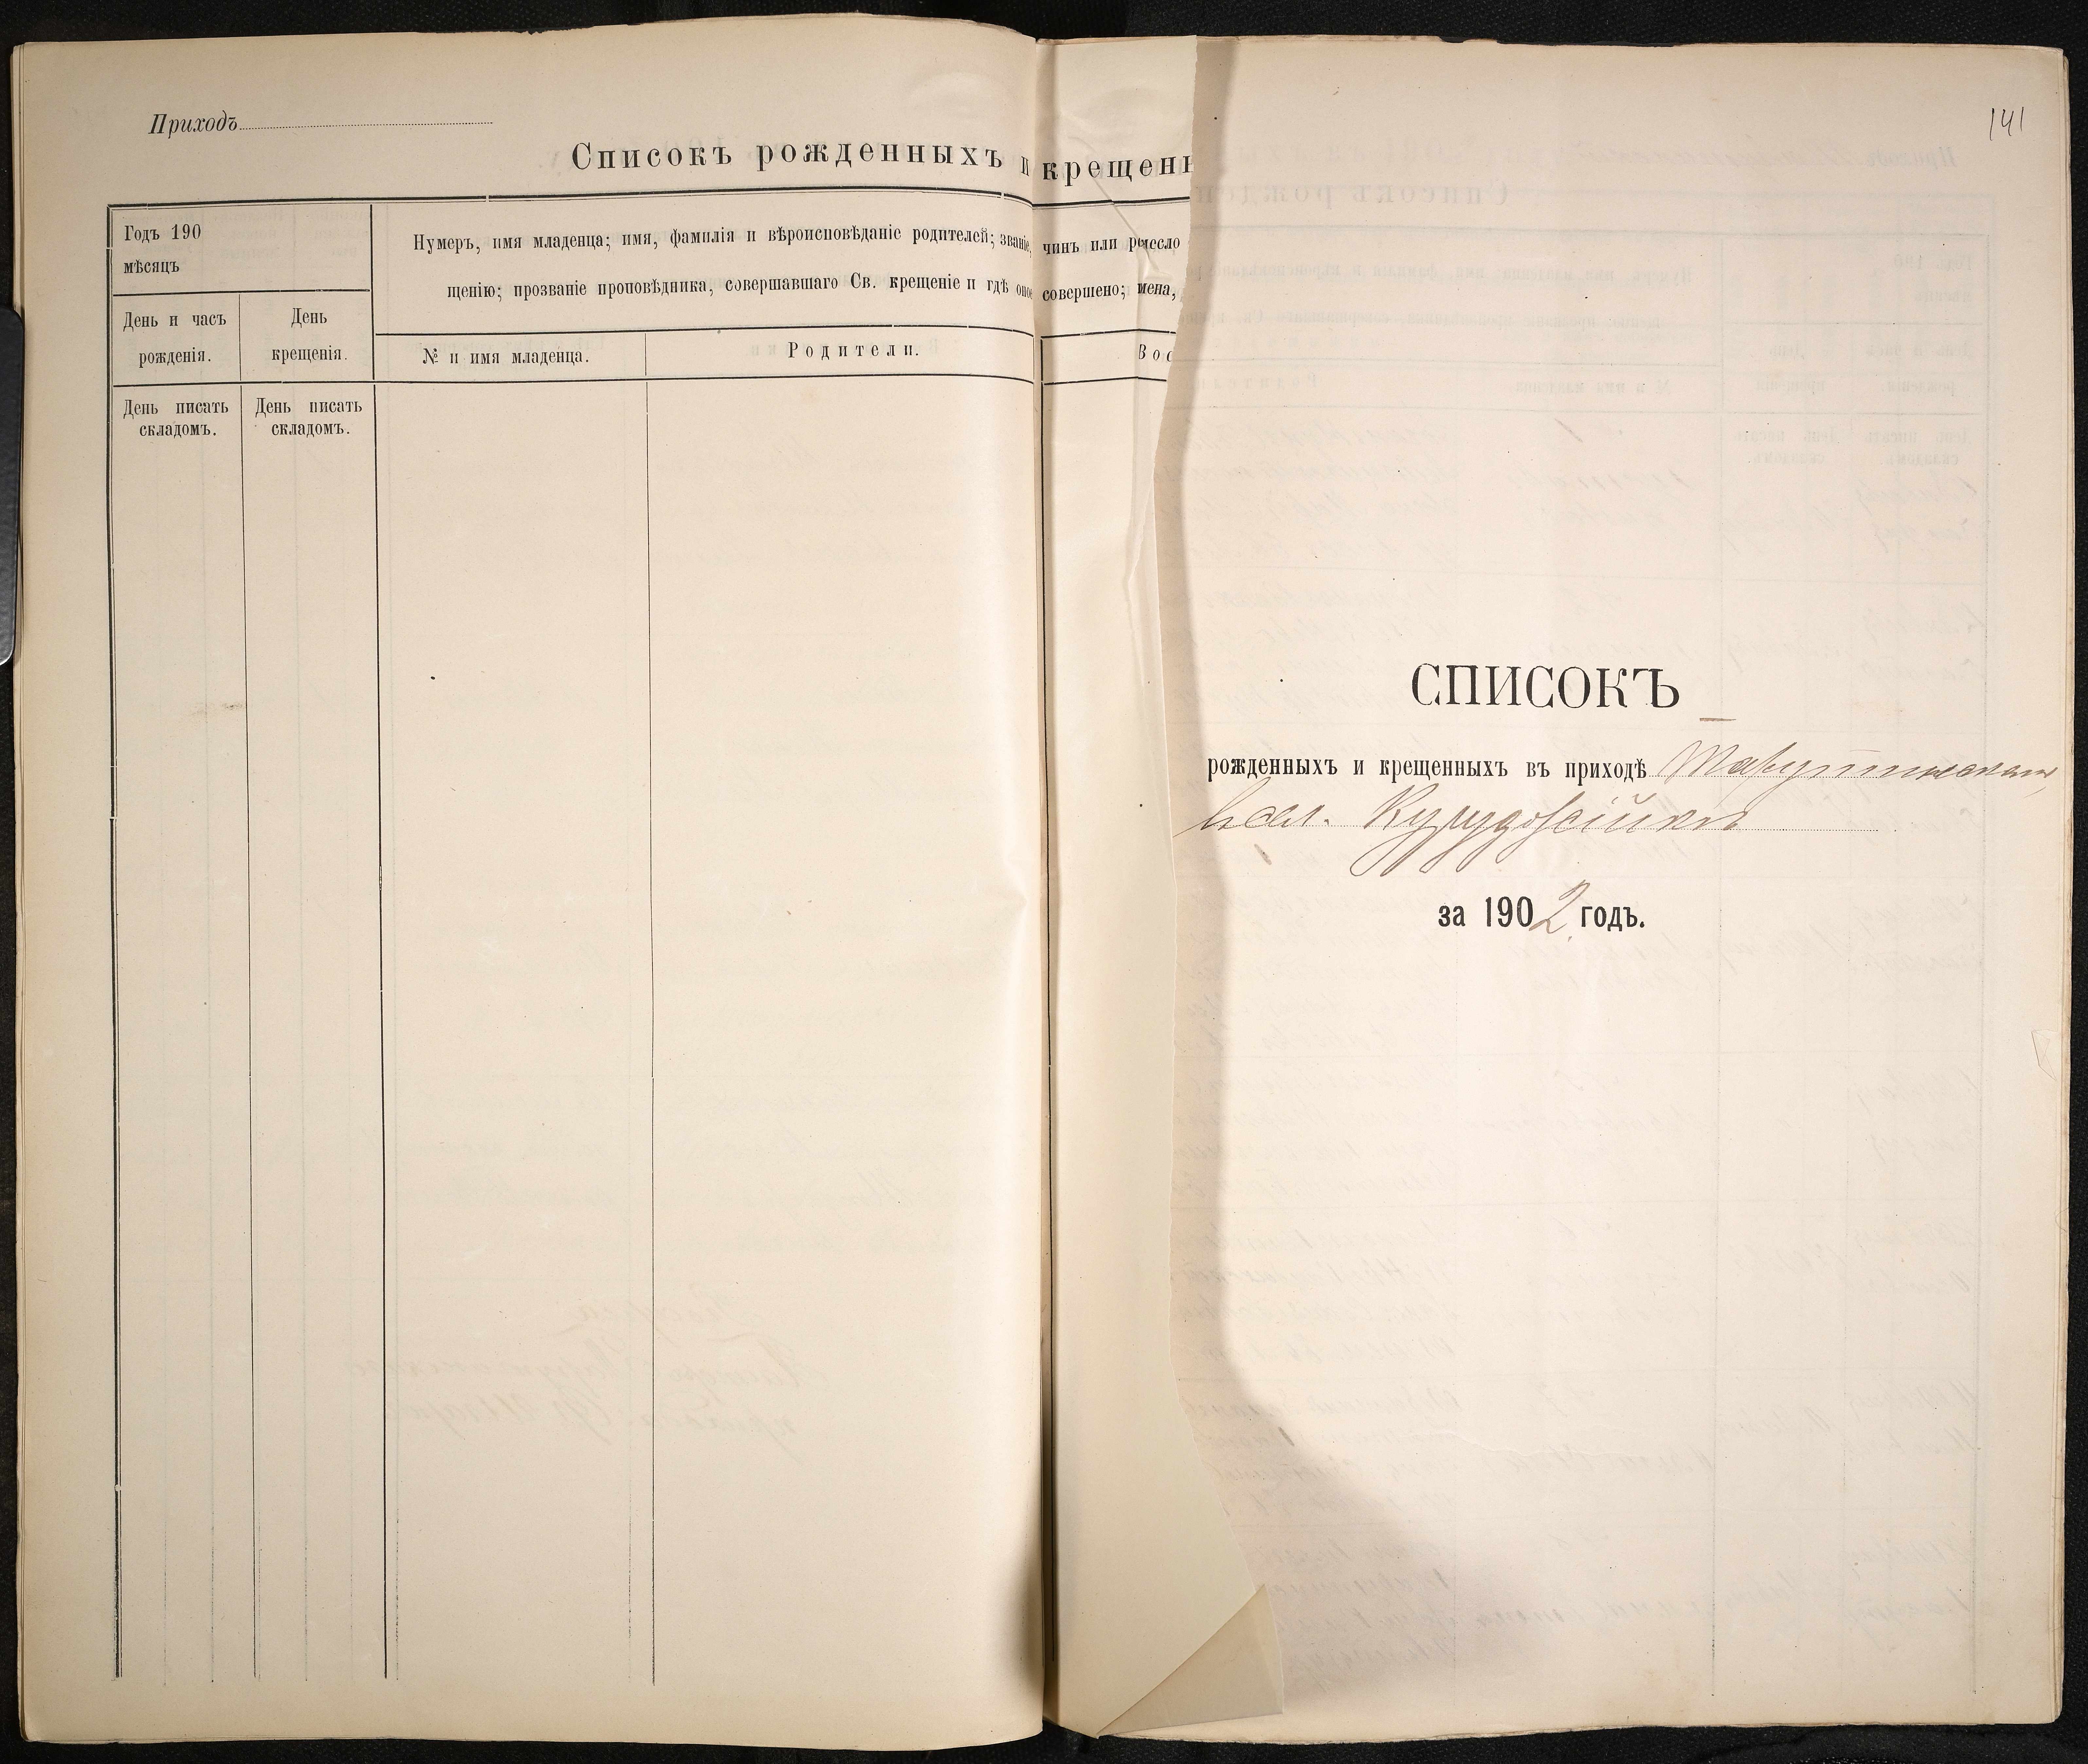 Приходъ
Списокъ рожденныхъ и крещенн
Годъ 190
мѣсяцъ
Нумеръ, имя младенца; имя, фамилія и вѣроисповѣданіе родителей; званіе, чинъ или ремесло
щенію; прозваніе проповѣдника, совершавшаго Св. крещеніе и гдѣ оное совершено; имена,
День и часъ
рожденія.
День
крещенія.
№ и имя младенца.
Родители.
Вос
День писать
складомъ.
День писать
складомъ.
141
СПИСОКЪ
рожденныхъ и крещенныхъ въ приходѣ Тарутинскомъ,
кол. Курудожійка
за 1902 годъ.